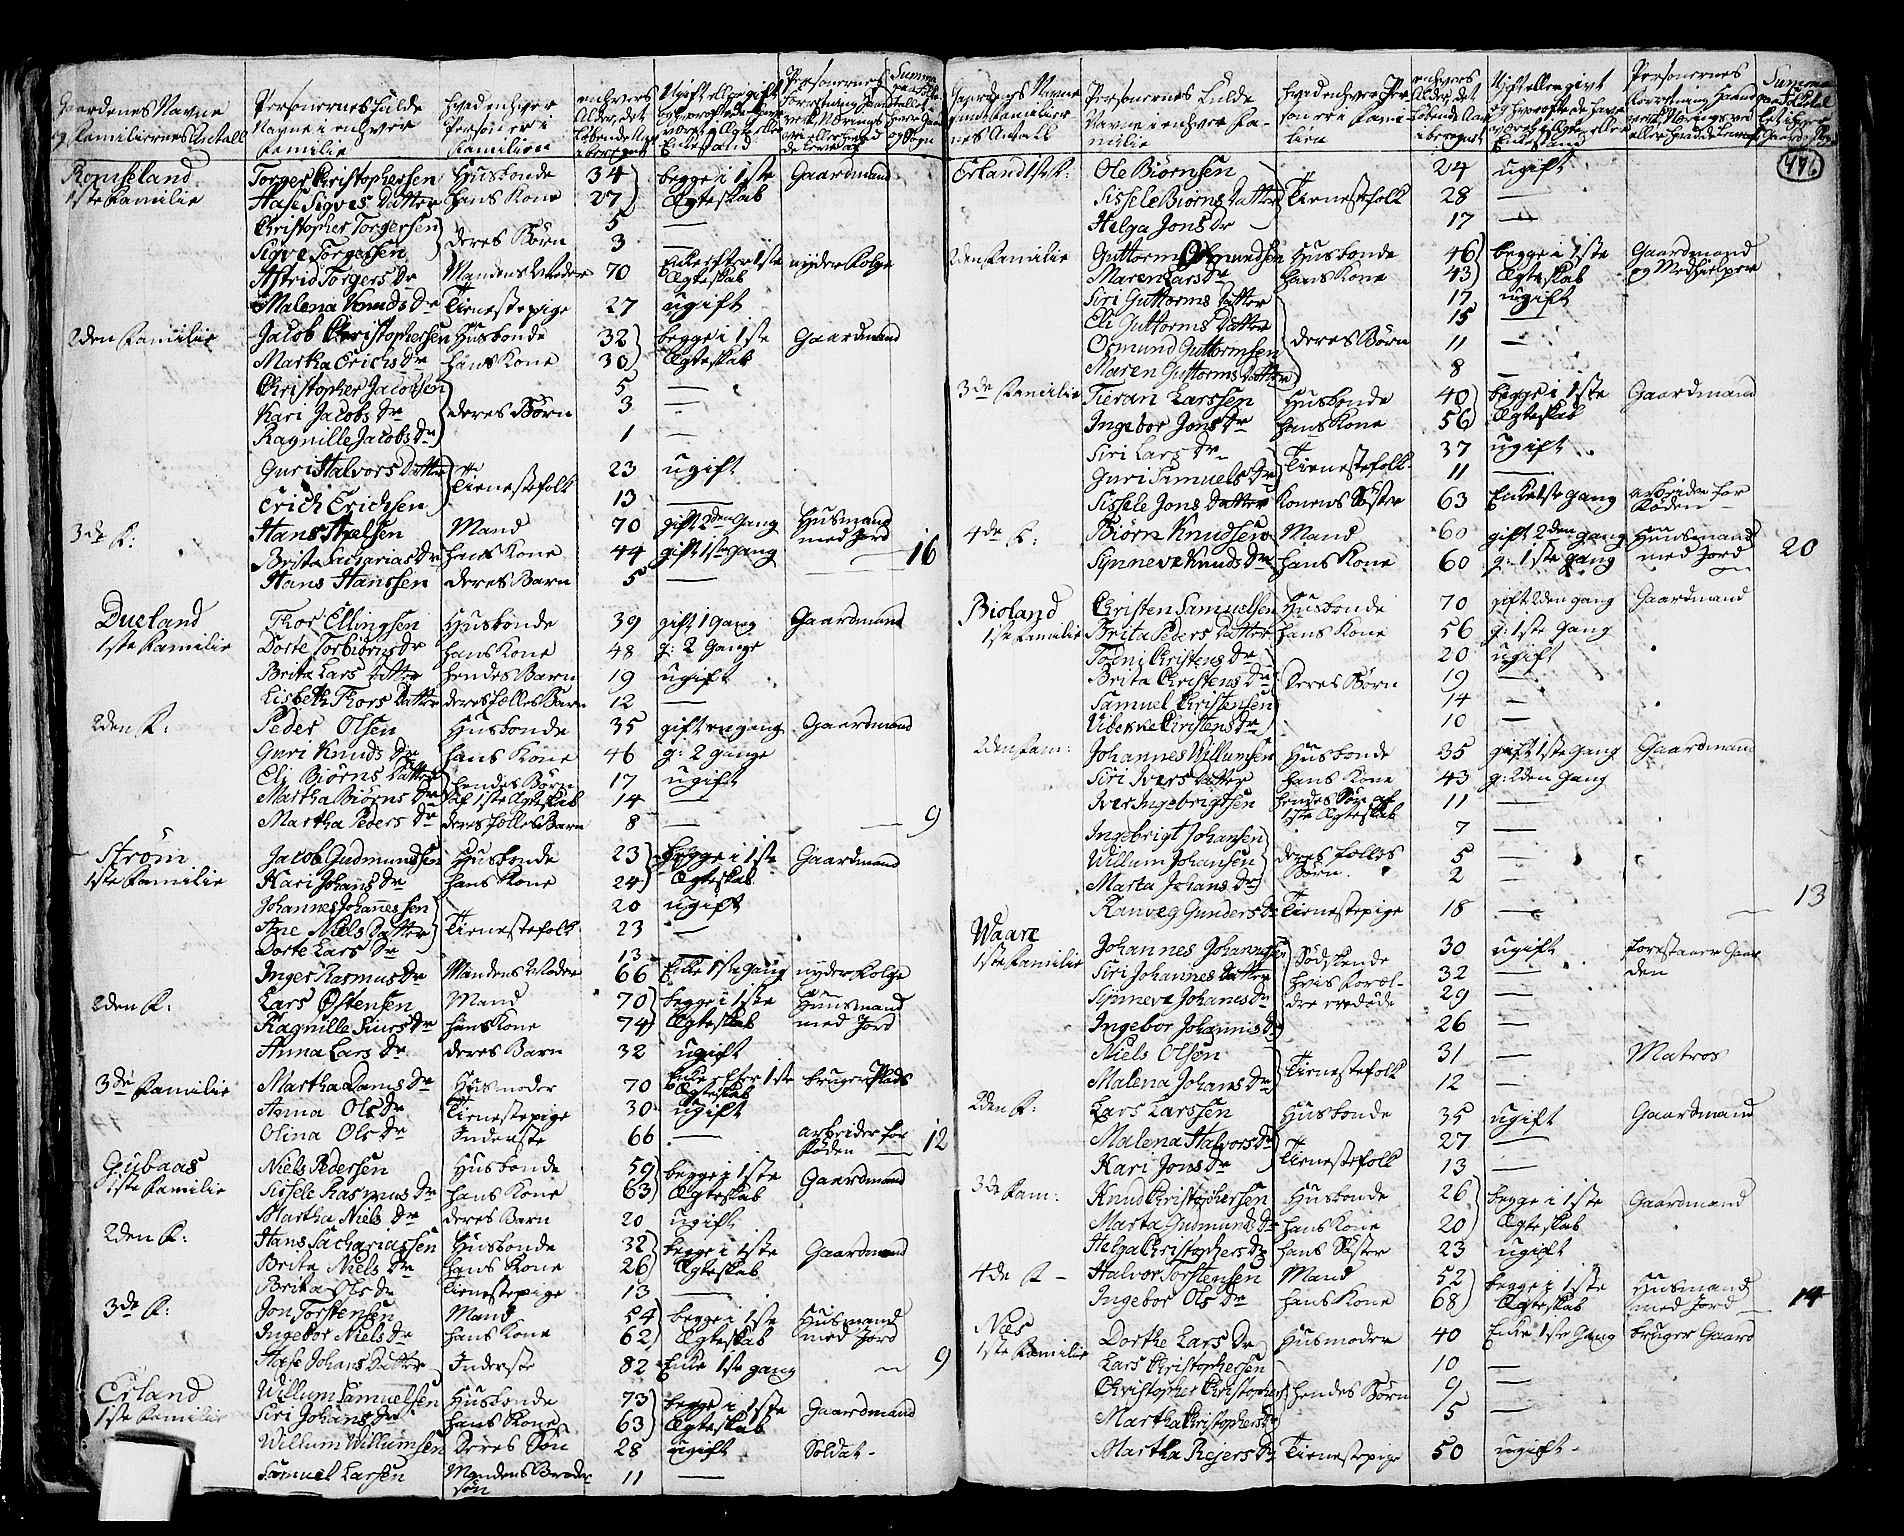 Gaardenes Navne og Familiernes Antall | Personernes fulde Navne i enhver Familie | hvad enhver Person er i Familien | enhvers Alder, det løbende Aar iberegnet | Ugift eller gift og hvor ofte de have været i Ægte eller Enkestand | Personernes
Romseland 1ste Familie | Torger Christophersen | Husbonde | 34 | begge i 1ste | Gaardmand
Aase Sigves Datter | hans Kone | 27 | Ægteskab
Christopher Torgersen | deres Børn | 5 | —
Sigve Torgersen | 3 | —
Astrid Torgers Dr | Mandens Moder | 70 | Enke efter 1ste Ægteskab | nyder Folge
Malena Knuds Dr | Tienestepige | 27 | ugift
2den Familie | Jacob Christophersen | Husbonde | 32 | begge i 1ste | Gaardmand
Martha Erichs Dr | hans Kone | 30 | Ægteskab
Christopher Jacobsen | 5 | —
Kari Jacobs Dr | deres Børn | 3 | —
Ragnille Jacobs Dr | 1 | —
Guri Halvors Datter | Tienestefolk | 23 | ugift
Erich Erichsen | 13 | —
3de F: | Hans Axelsen | Mand | 70 | gift 2den Gang | Husmand
Brita Sacharias Dr | hans Kone | 44 | gift 1ste Gang | med Jord | 16
Hans Hanssen | deres Barn | 5 | —
Dueland | Thor Ellingsen | Husbonde | 39 | gift 1 gang | Gaardmand
1ste Familie | Dorte Torbiørns Dr | hans Kone | 48 | g: 2 Gange
Brita Lars Datter | hendes Barn | 19 | ugift
Lisbeth Thors Datter | deres fælles Barn | 12 | —
2den F: | Peder Olsen | Husbonde | 35 | gift en gang | Gaardmand
Guri Knuds Dr | hans Kone | 46 | g: 2 gange
Eli Biørns Datter | hendes Børn | 17 | ugift
Martha Biørns Dr | af 1ste Ægteskab | 14 | —
Martha Peders Dr | deres fælles Barn | 8 | — | 9
Strøm | Jacob Gudmundsen | Husbonde | 23 | begge i 1ste | Gaardmand
1ste Familie | Kari Johans Dr | hans Kone | 24 | Ægteskab
Johannes Johannessen | 20 | ugift
Ane Niels Datter | Tienestefolk | 23 | —
Dorte Lars Dr | 13
Inger Rasmus Dr | Mandens Moder | 66 | Enke 1ste Gang | nyder Folge
2den F: | Lars Østensen | Mand | 70 | begge i 1ste | Huusmand
Ragnille Siurs Dr | hans Kone | 74 | Ægteskab | med Jord
Anna Lars Dr | deres Barn | 32 | ugift
3de Familie | Martha Dams Dr | Husmoder | 70 | Enke efter 1ste Ægteskab | bruger Plads
Anna Ols Dr | Tienestepige | 30 | ugift
Olina Ols Dr | Inderste | 66 | — | arbeider for Føden | 12
Gubaas | Niels Pedersen | Husbonde | 59 | begge i 1ste | Gaardmand
1ste Familie | Sissele Rasmus Dr | hans Kone | 63 | Ægteskab
Martha Niels Dr | deres Barn | 20 | ugift
2den F: | Hans Sachariassen | Husbonde | 32 | begge i 1ste | Gaardmand
Brita Niels Dr | hans Kone | 26 | Ægteskab
Brita Ols Dr | Tienestepige | 13 | —
3de F: | Jon Torstensen | Mand | 54 | begge i 1ste | Husmand
Ingebor Niels Dr | hans Kone | 62 | Ægteskab | med Jord
Aase Johans Datter | Inderste | 82 | Enke 1ste gang | 9
Erland | Willum Samuelsen | Husbonde | 73 | begge i 1ste | Gaardmand
1ste Familie | Siri Johans Dr | hans Kone | 63 | Ægteskab
Willum Willumsen | Deres Søn | 28 | ugift | Soldat
Samuel Larsen | Mandens Broder søn | 11 | —
Personernes fulde Navne i enhver Familie | hvad enhver Person er i Familien | enhvers Alder, det løbende Aar iberegnet
446
Erland 1st F: | Ole Biørnsen | 24 | ugift
Sissele Biørns Datter | Tienestefolk | 28 | —
Helga Jons Dr | 17 | —
2den Familie | Guttorm Osmundsen | Husbonde | 46 | begge i 1ste | Gaardmand
Maren Lars Dr | hans Kone | 43 | Ægteskab | og Medhielper
Siri Guttorms Datter | 17 | ugift
Eli Guttorms Datter | 15 | —
Osmund Guttormsen | deres Børn | 11 | —
Maren Guttorms Datter | 8 | —
3de Familie | Tieran Larssen | Husbonde | 40 | begge i 1ste | Gaardmand
Ingebor Jons Dr | hans Kone | 56 | Ægteskab
Siri Lars Dr | 37 | ugift
Guri Samuels Dr | Tienestefolk | 11 | —
Sissele Jons Datter | Konens Søster | 63 | Enke 1ste gang | arbeider for Føden
4de F: | Biørn Knudsen | Mand | 60 | gift 2den gang | Huusmand
Synneve Knuds Dr | hans Kone | 60 | g: 1ste gang | med Jord | 20
Bioland | Christen Samuelsen | Husbonde | 70 | gift 2den gang | Gaardmand
1ste Familie | Brita Peders Datter | hans Kone | 56 | g: 1ste Gang
Todni Christens Dr | 20 | ugift
Brita Christens Dr | Deres Børn | 19 | —
Samuel Christensen | 14 | —
Vibekke Christens Dr | 10 | —
2den Fam: | Johannes Willumsen | Husbonde | 35 | gift 1ste Gang | Gaardmand
Siri Ivers Datter | hans Kone | 43 | g: 2den Gang
Iver Ingebrigtsen | hendes Søn af 1ste Ægteskab | 11 | —
Ingebrigt Johansen | 7 | —
Willum Johansen | deres fælles Børn | 5 | —
Marta Johans Dr | 2 | —
Ranveg Gunders Dr | Tienestepige | 18 | — | 13
Waare | Johannes Johannesen | Sødskende | 30 | ugift | forestaaer Gaarden
1ste Familie | Siri Johannes Datter | hvis Foræl- | 32 | —
Synneva Johanes Dr | dre ere døde | 29 | —
Ingebor Johannis Dr | 26 | —
Niels Olsen | Tienestefolk | 31 | — | Matros
Malena Johans Dr | 12 | —
2den F: | Lars Larssen | Husbonde | 35 | ugift | Gaardmand
Malena Halvors Dr | Tienestefolk | 27 | —
Kari Jons Dr | 13 | —
3de Fam: | Knud Christophersen | Husbonde | 26 | begge i 1ste | Gaardmand
Marta Gudmunds Dr | hans Kone | 20 | Ægteskab
Helga Christophers Dr | hans Søster | 23 | ugift
4de F — | Halvor Torstensen | Mand | 52 | begge i 1ste | Husmand
Ingebor Ols Dr | hans Kone | 68 | Ægteskab | med Jord | 14
Næs | Dorthe Lars Dr | Husmoder | 40 | Enke 1ste Gang | bruger Gaard
1ste Familie | Lars Christophersen | 10 | —
Christopher Christophers: | hendes Børn | 9 | —
Martha Christophers Dr | 5 | —
Martha Rejers Dr | Tienestepige | 50 | ugift